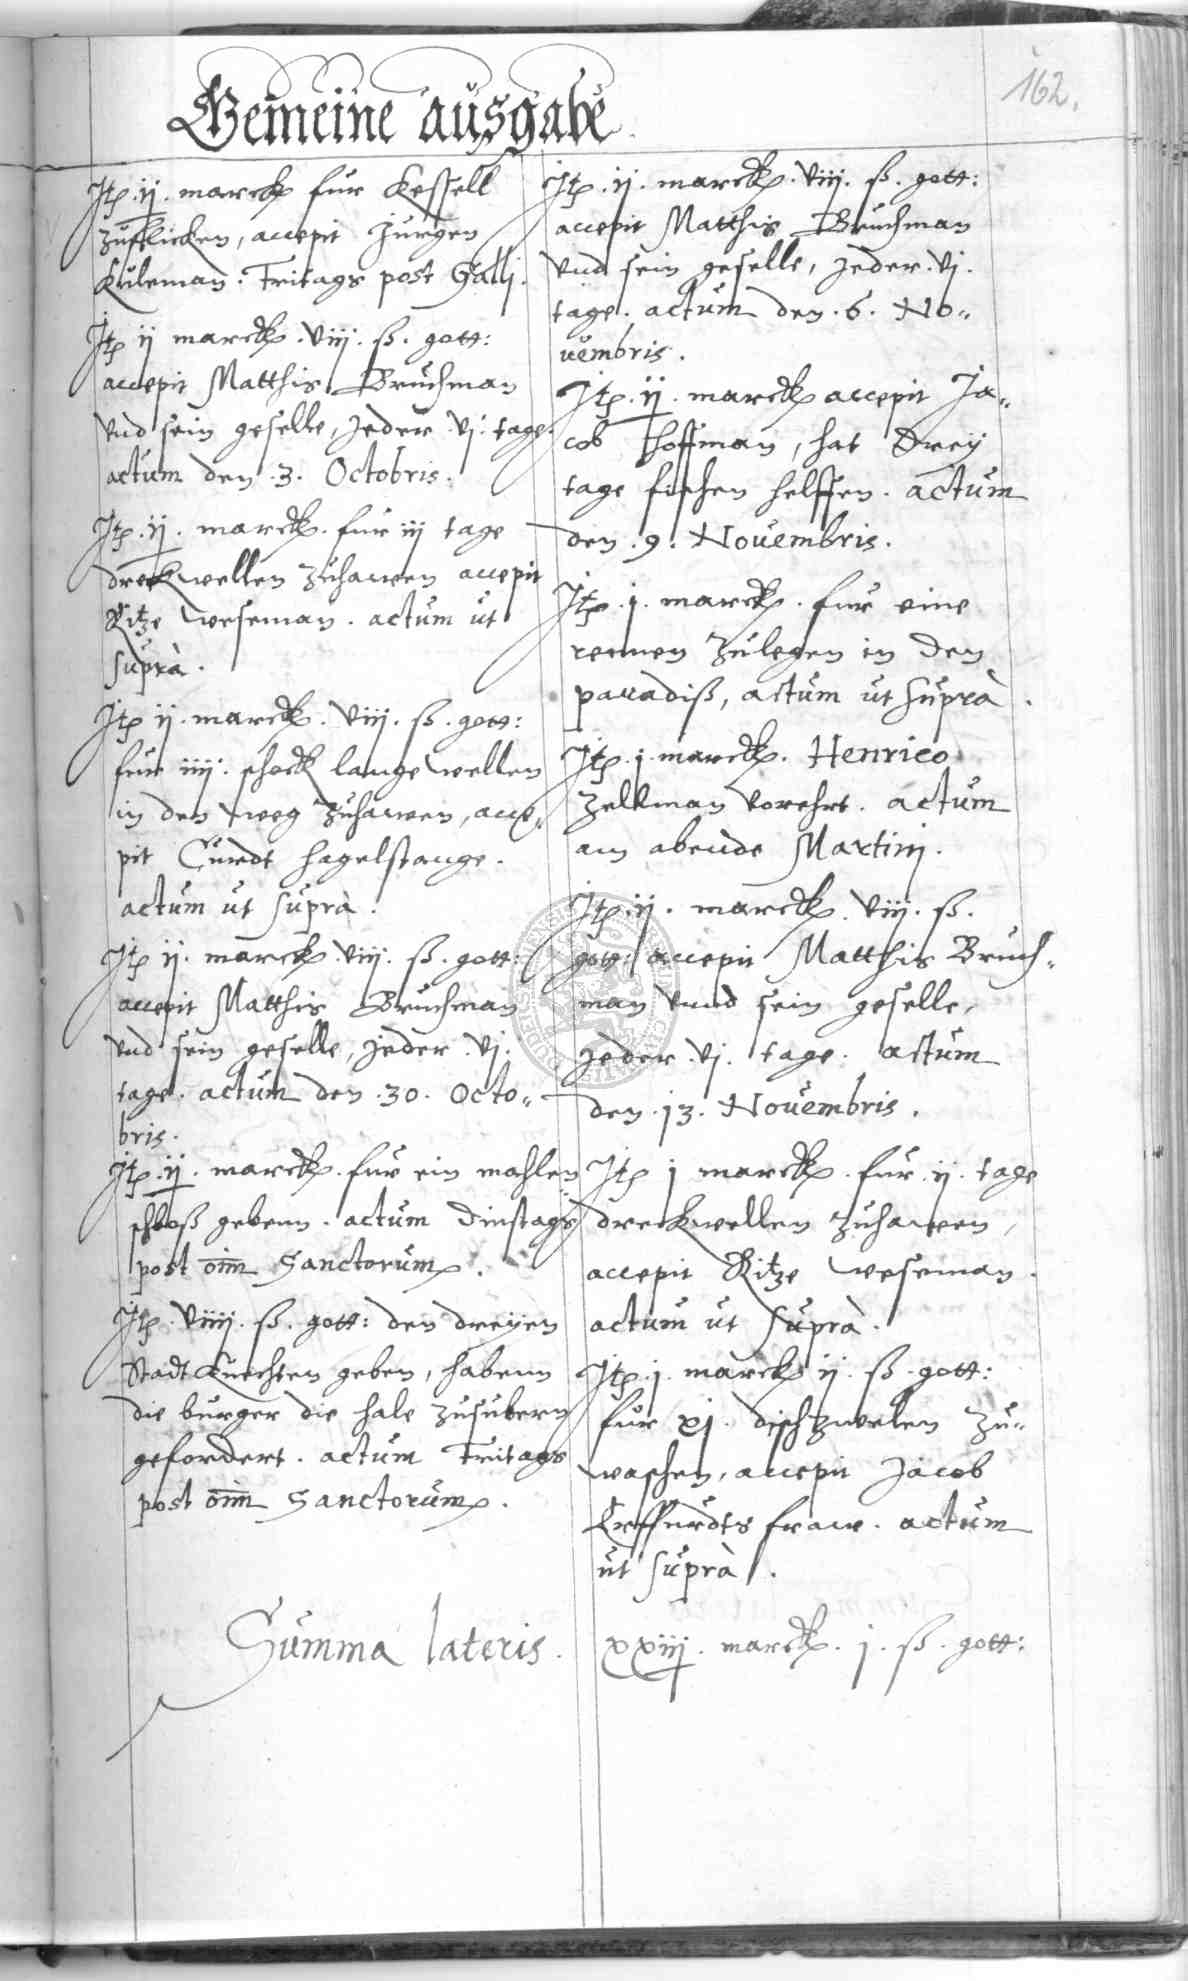 162.
Gemeine ausgabe
Itp. ij. marck fur Kessell
zuflicken, accepit Jurgen
Kuleman. Fritags post Galli.
Itp ij marck. viij. ß. gott:
accepit Matthis Bruchman
vnd sein geselle, Jeder vj. tage.
actum den .3. Octobris.
Itp. ij. marck. fur iij tage
dreckwellen zuhawen accepit
Ritze Weseman. actum ut
supra.
Itp ij. marck. viij. ß. gott:
fur iiij. schock lange wellen
in den weg zuhawen, acce,
pit Curdt Hagelstange.
actum ut supra.
Itp ij. marck. viij. ß. gott:
accepit Matthis Bruchman
vnd sein geselle, Jeder vj.
tage. actum den .30. Octo„
bris.
Itp. ij. marck. fur ein mahlen„
schloß gebenn. actum Dinstags
post om̄ Sanctorum.
Itp. viiij. ß. gott: den dreyen
Stadt Knechten geben, habenn
die burger die hale zusubern
gefordert. actum Fritags
post om̄ Sanctorum.
Itp. ij. marck. viij. ß. gott:
accepit Matthis Bruchman
vnd sein geselle, Jeder. vj.
tage. actum den .6. No„
uembris.
Itp. ij. marck accepit Ja„
cob Hoffman, hat Drey
tage fischen helffen. actum
den .9. Nouembris.
Itp. j. marck. fur eine
rennen zulegen in den
paradiß, actum ut supra.
Itp. j. marck. Henrico
Zelkman vorehrt. actum
am abende Martinj.
Itp. ij. marck. viij. ß.
gott: accepit Matthis Bruch„
man vnnd sein geselle,
Jeder. vj. tage. actum
den .13. Nouembris.
Itp j marck. fur. ij. tage
dreckwellen zuhawen,
accepit Ritze Weseman.
actum ut supra.
Itp. j. marck ij. ß. gott:
fur xj. dischzwelen zu„
waschen, accepit Jacob
Erffurdts fraw. actum
ut supra.
Summa lateris. xxiij. marck. j. ß. gott: